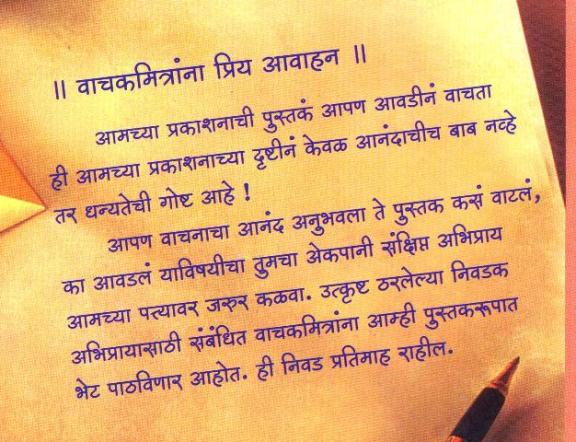 ॥ वाचकमित्रांना प्रिय आवाहन ॥
आमच्या प्रकाशनाची पुस्तकं आपण आवडीनं वाचता
ही आमच्या प्रकाशनाच्या दृष्टीनं केवळ आनंदाचीच बाब नव्हे
तर धन्यतेची गोष्ट आहे !
आपण वाचनाचा आनंद अनुभवला ते पुस्तक कसं वाटलं,
का आवडलं याविषयीचा तुमचा अेकपानी संक्षिप्त अभिप्राय
आमच्या पत्त्यावर जरुर कळवा. उत्कृष्ट ठरलेल्या निवडक
अभिप्रायासाठी संबंधित वाचकमित्रांना आम्ही पुस्तकरूपात
भेट पाठविणार आहोत. ही निवड प्रतिमाह राहील.